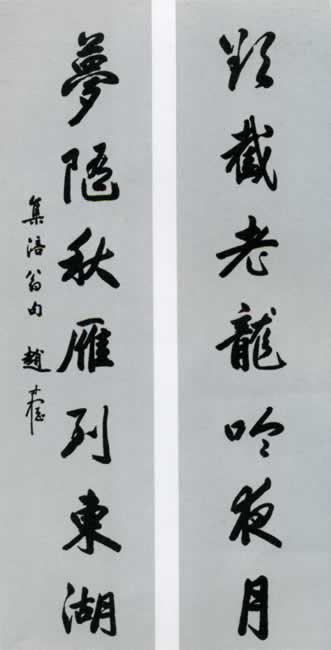 欲截老龍吟夜月
夢随秋雁到東湖
集涪翁句 趙